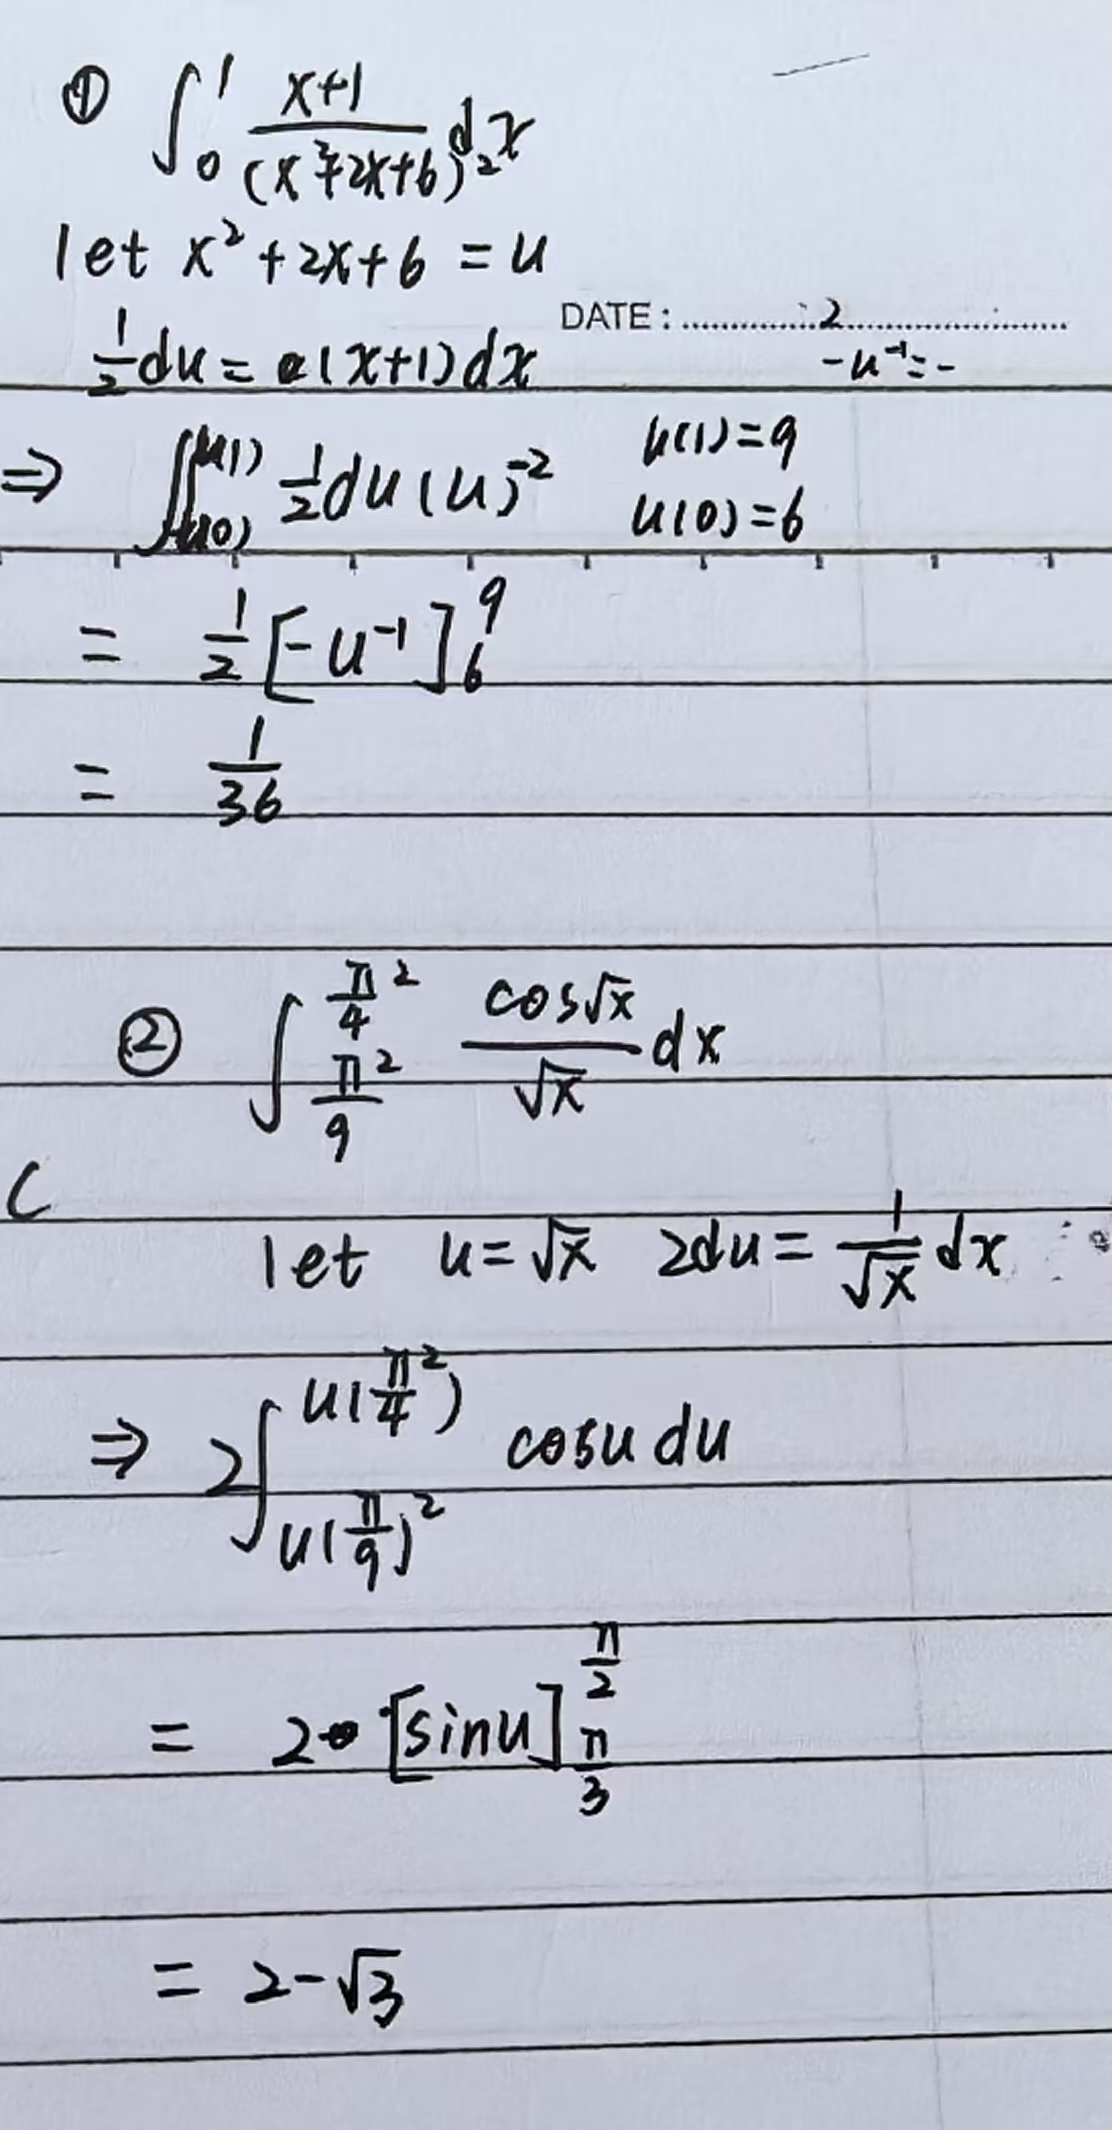 ① ∫₀¹ (x+1)/(x²+2x+6)² dx
let x²+2x+6 = u
DATE : ..............2........................
½du = (x+1)dx
-u⁻¹=-
⇒ ∫_{u(0)}^{u(1)} ½du(u)⁻² u(1)=9
u(0)=6
= ½[-u⁻¹]₆⁹
= 1/36
② ∫_{π²/9}^{π²/4} cos√x/√x dx
C
let u=√x 2du = 1/√x dx
⇒ 2∫_{u(π/9)²}^{u(π²/4)} cosu du
= 2 [sinu]_{π/3}^{π/2}
= 2-√3